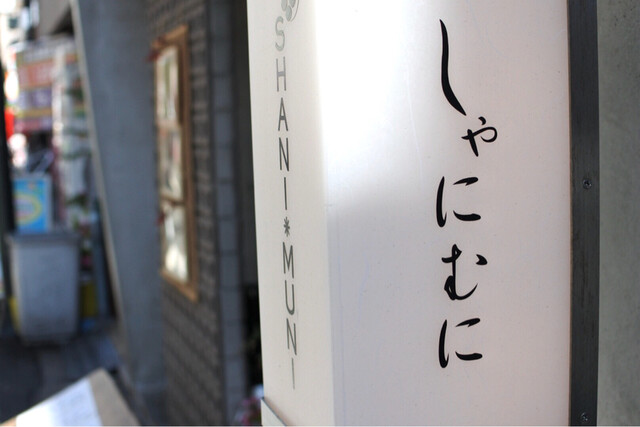 SHANI*MUNI
しゃにむに